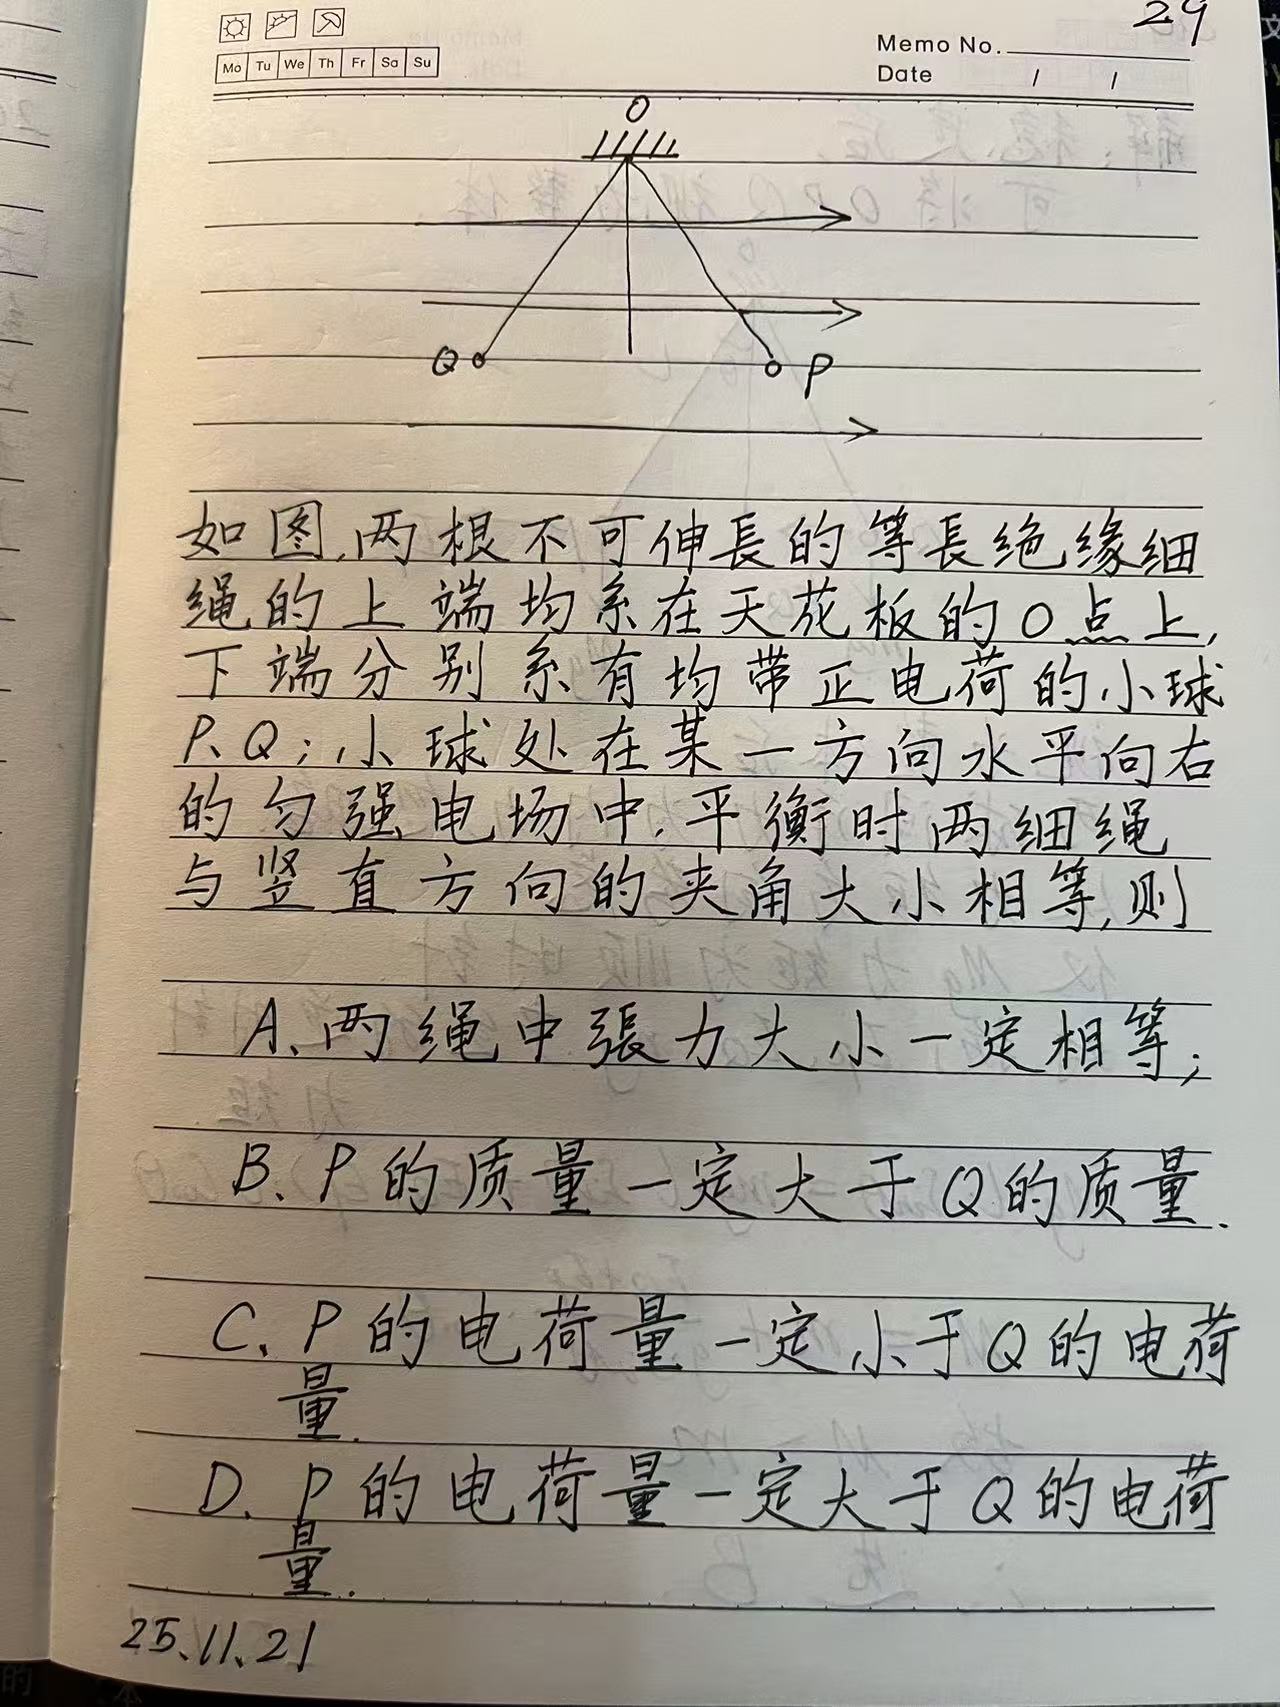 29
Memo No.
Mo Tu We Th Fr Sa Su
Date / /
O
Q P
如图,两根不可伸長的等長绝缘细
绳的上端均系在天花板的O点上,
下端分别系有均带正电荷的小球
P、Q;小球处在某一方向水平向右
的匀强电场中.平衡时两细绳
与竖直方向的夹角大小相等,则
A、两绳中張力大小一定相等;
B、P的质量一定大于Q的质量.
C、P的电荷量一定小于Q的电荷
量.
D、P的电荷量一定大于Q的电荷
量.
25.11.21